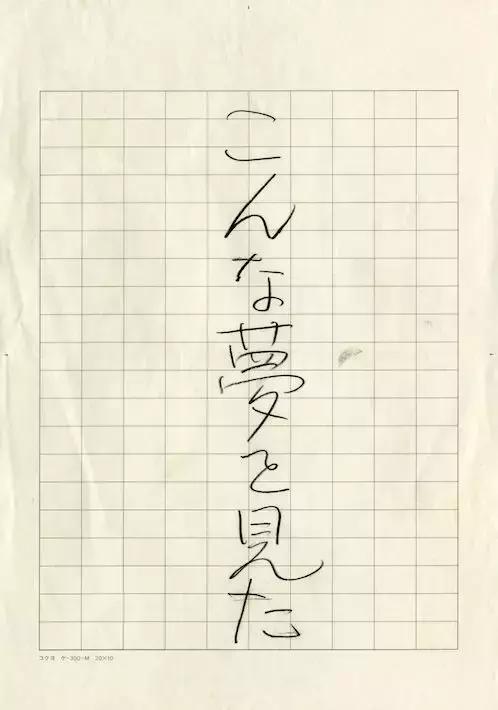 こんな夢を見た
コクヨ ケ-30J-M 20×10